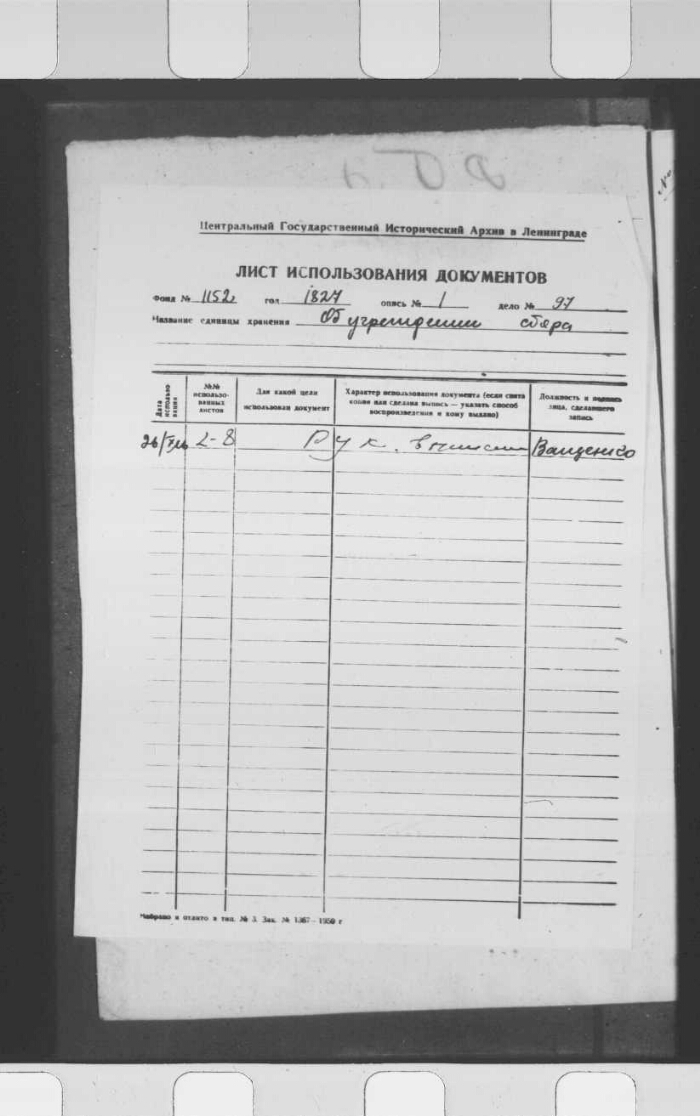 Центральный Государственный Исторический Архив в Ленинграде
ЛИСТ ИСПОЛЬЗОВАНИЯ ДОКУМЕНТОВ
Фонд № 1152 год 1827 опись № 1 дело № 97
Название единицы хранения Об учреждении сбора
Дата использования
№№ использованных листов
Для какой цели использован документ
Характер использования документа (если снята копия или сделана выпись — указать способ воспроизведения и кому выдано)
Должность и подпись лица, сделавшего запись
2-8 Ващенко
Набрано и отлито в тип. № 3. Зак. № 1367—1950 г